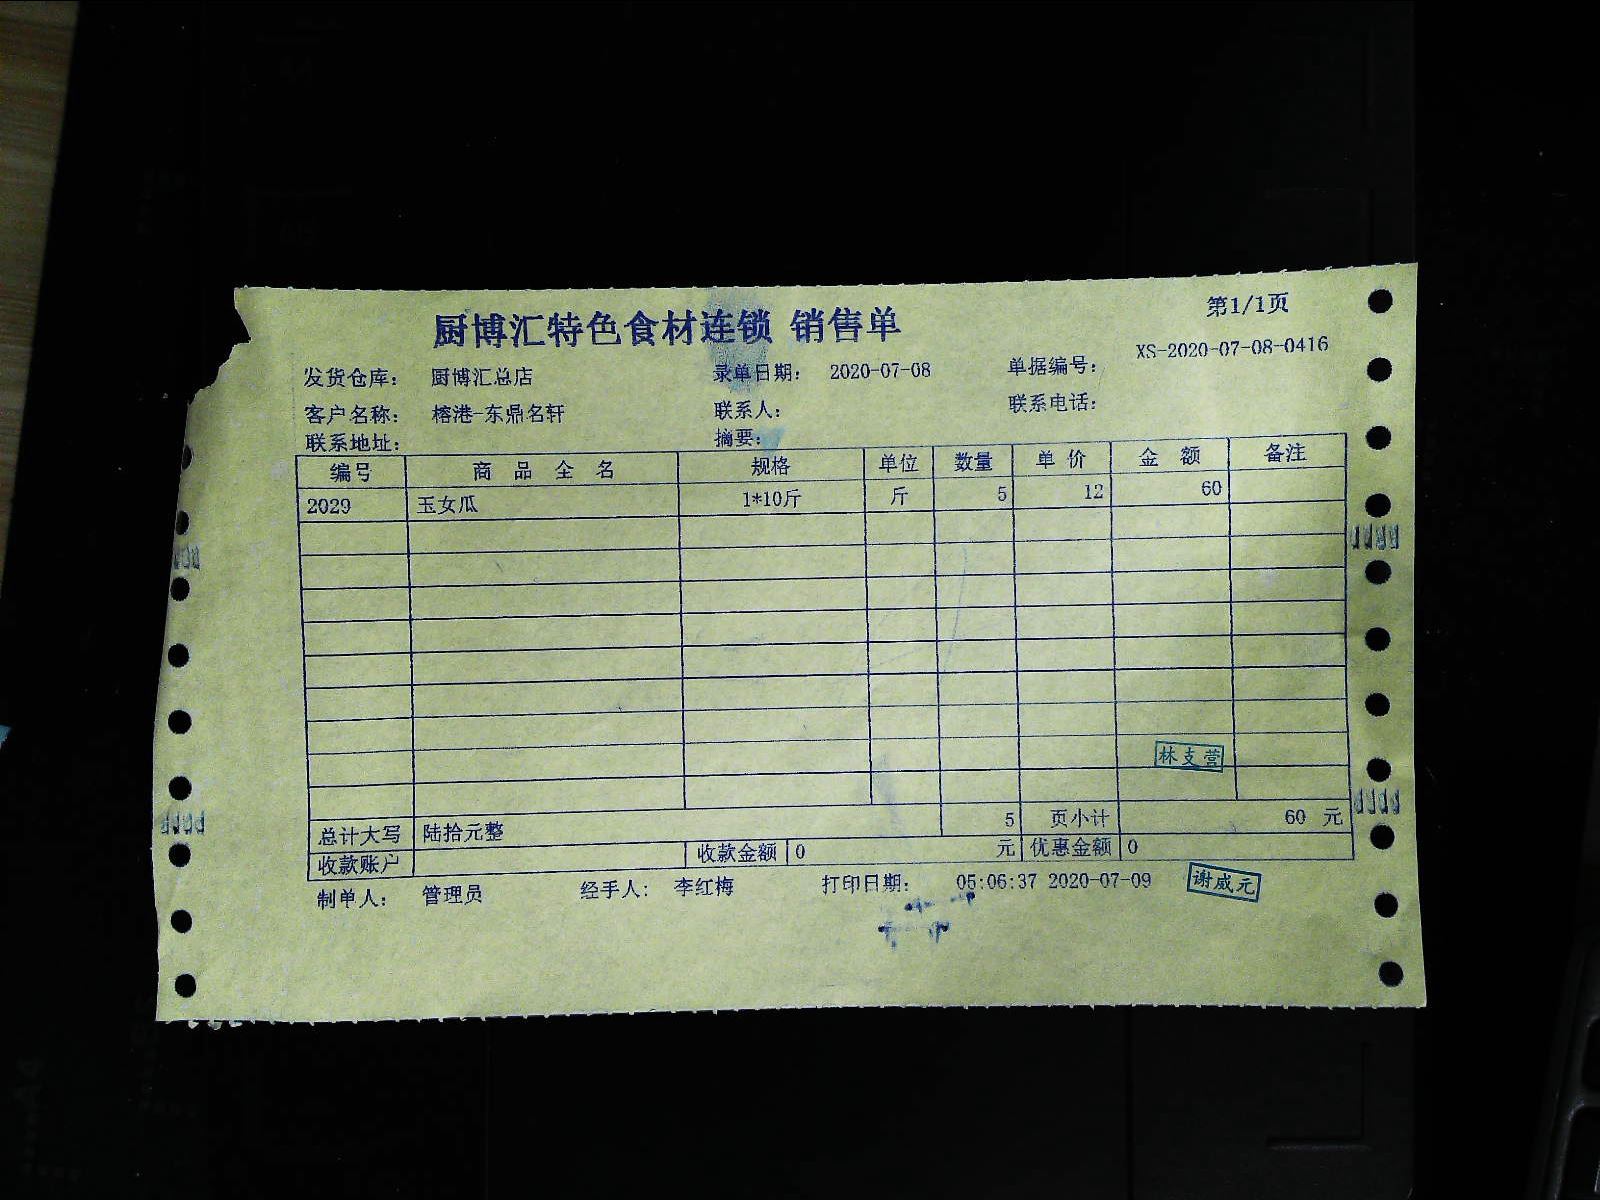 厨博汇特色食材连锁 销售单
第1/1页
发货仓库： 厨博汇总店 录单日期： 2020-07-08 单据编号： XS-2020-07-08-0416
客户名称： 榕港-东鼎名轩 联系人： 联系电话：
联系地址： 摘要：
编号 商品全名 规格 单位 数量 单价 金额 备注
2029 玉女瓜 1*10斤 斤 5 12 60
林支营
总计大写 陆拾元整 5 页小计 60 元
收款账户 收款金额 0 元 优惠金额 0
制单人： 管理员 经手人： 李红梅 打印日期： 05:06:37 2020-07-09 谢威元